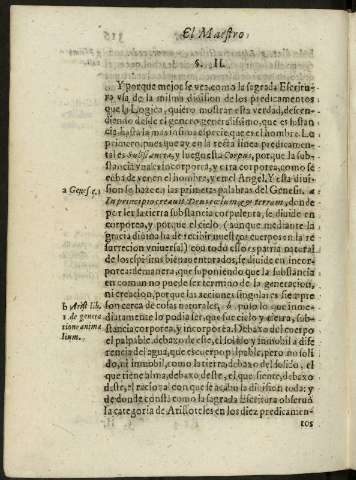 El Maestro,
§. II.
Y porque mejor se vea, como la sagrada Escritu-
ra vsa de la misma diuision de los predicamentos
que la Logica, quiero mostrar esta verdad, descen-
diendo desde el genero generalissimo, que es la stan-
cia, hasta la mas infima especie, que es el hombre. Lo
primero, pues que ay en la recta linea predicamen-
tal es Substancia, y luego esta Corpus, porque la sub-
stancia, vna es incorporea, y otra corporea, como se
echa de ver en el hombre, y en el Angel. Y esta diui-
a Genes. c. 1
sion se haze en las primeras palabras del Genesis. a
In principio creauit Deus cælum, & terram, donde
por ser la tierra substancia corpulenta, se diuide en
corporea, y porque el cielo (aunque mediante la
gracia diuina ha de recibir nuestros cuerpos en la re
surreccion vniuersal) con todo esso es patria natural
de los espiritus bienauenturados, se diuide en incor-
porea: de manera, que suponiendo que la substancia
en comun no puede ser termino de la generacion,
ni creacion, porque las acciones singulares siempre
b Arist. lib.
1 de genera
tione anima
lium.
son cerca de cosas naturales, b puso lo que inme-
diatamente lo podia ser, que fue cielo y tierra, sub-
stancia corporea, y incorporea. Debaxo del cuerpo
el palpable, debaxo de este, el solido, y inmobil a dife
rencia del agua, que es cuerpo palpable, pero no soli
do, ni inmobil, como la tierra, debaxo del solido, el
que tiene alma, debaxo deste, el que siente, debaxo
deste, el racional con que se acaba la diuision toda: y
de donde consta como la sagrada Escritura obseruò
la categoria de Aristoteles en los diez predicamen-
tos